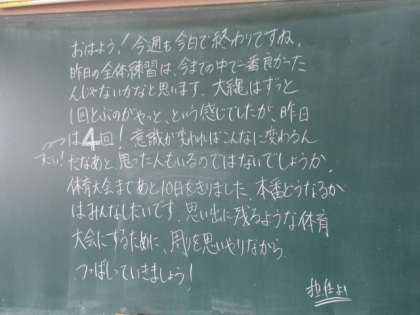 おはよう！今週も今日で終わりですね。
昨日の全体練習は、今までの中で一番良かった
んじゃないかなと思います。大縄はずっと
1回とぶのがやっと、という感じでしたが、昨日
は4回！意識が変わればこんなに変わるん
すごい！
だなあと、思った人もいるのではないでしょうか。
体育大会まであと10日をきりました。本番どうなるか
はみんなしだいです。思い出に残るような体育
大会にするために、周りを思いやりながら
つっぱしっていきましょう！
担任より